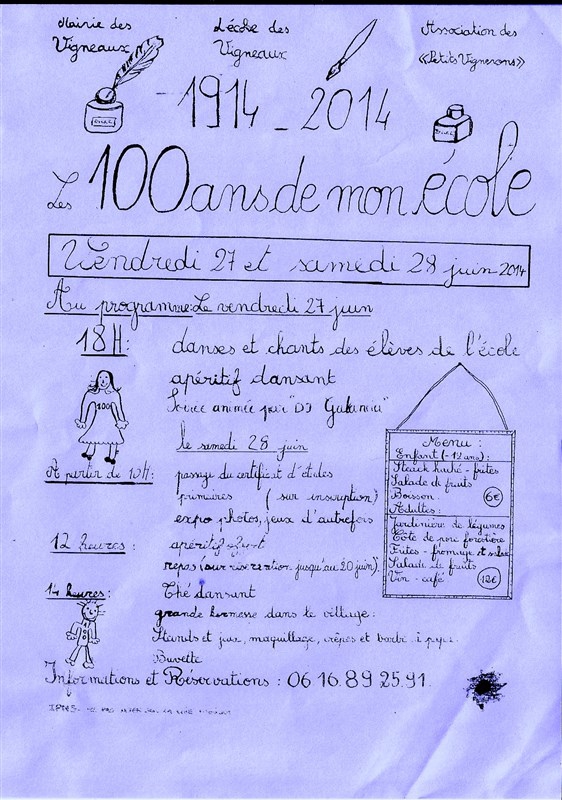 Mairie des Vigneaux
L'école des Vigneaux
Association des «Petits Vignerons»
ENCRE
1914 - 2014
Les 100 ans de mon école
Vendredi 27 et samedi 28 juin 2014
Au programme: Le vendredi 27 juin
18H: danses et chants des élèves de l'école
apéritif dansant
Soirée animée par "DJ
le samedi 28 juin
À partir de 10H: passage du certificat d'études
primaires (sur inscription)
expo photos, jeux d'autrefois
12 heures: apéritif offert
repas (sur réservation jusqu'au 20 juin).
14 heures: Thé dansant
grande kermesse dans le village:
Stands et jeux, maquillage, crêpes et barbe à papa.
Buvette
Informations et Réservations: 06 16 89 25 91.
100
Menu:
Enfant (-12 ans):
Steack haché - frites
Salade de fruits
Boisson
6€
Adultes:
Jardinière de légumes
Côte de porc forestière
Frites - fromage et salade
Salade de fruits
Vin - café
12€